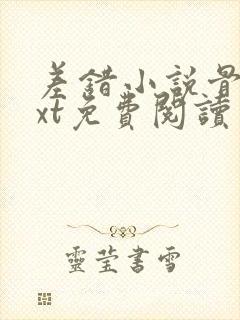 差錯小說最
xt免費閱讀
靈莹書雪